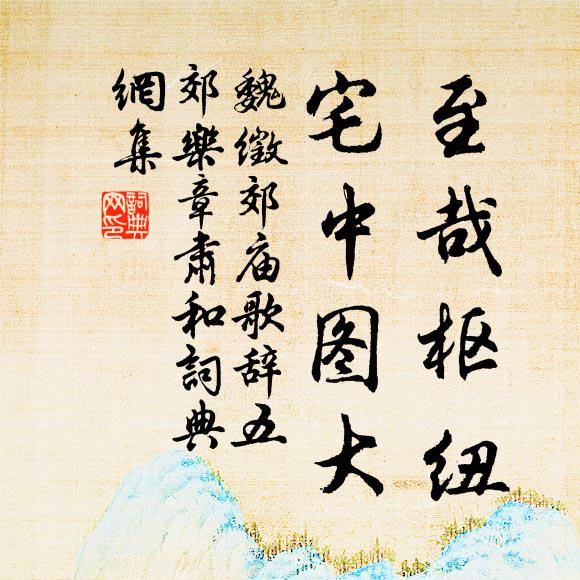 至哉枢纽
宅中图大
魏徵郊庙歌辞五
郊樂章肃和詞典
網集
詞典网印